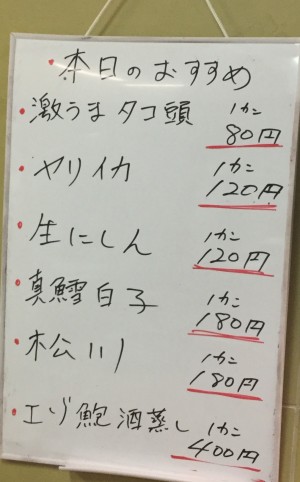 ・本日のおすすめ
・激うまタコ頭 1カン 80円
・ヤリイカ 1カン 120円
・生にしん 1カン 120円
・真鱈白子 1カン 180円
・松川 1カン 180円
・エゾ鮑酒蒸し 1カン 400円